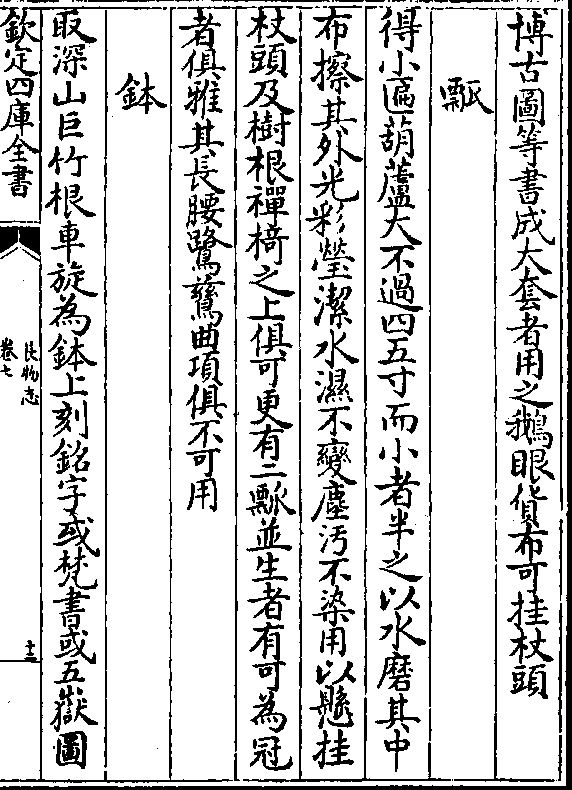 博古圖等書成大套者用之鵝眼貨布可挂杖頭
瓢
得小匾葫蘆大不過四五寸而小者半之以水磨其中
布擦其外光彩瑩潔水濕不變塵污不染用以懸挂
杖頭及樹根禪椅之上俱可更有二瓢並生者有可為冠
者俱雅其長腰鷺鷥曲項俱不可用
鉢
取深山巨竹根車旋為鉢上刻銘字或梵書或五嶽圖
欽定四庫全書
長物志
卷七
十三